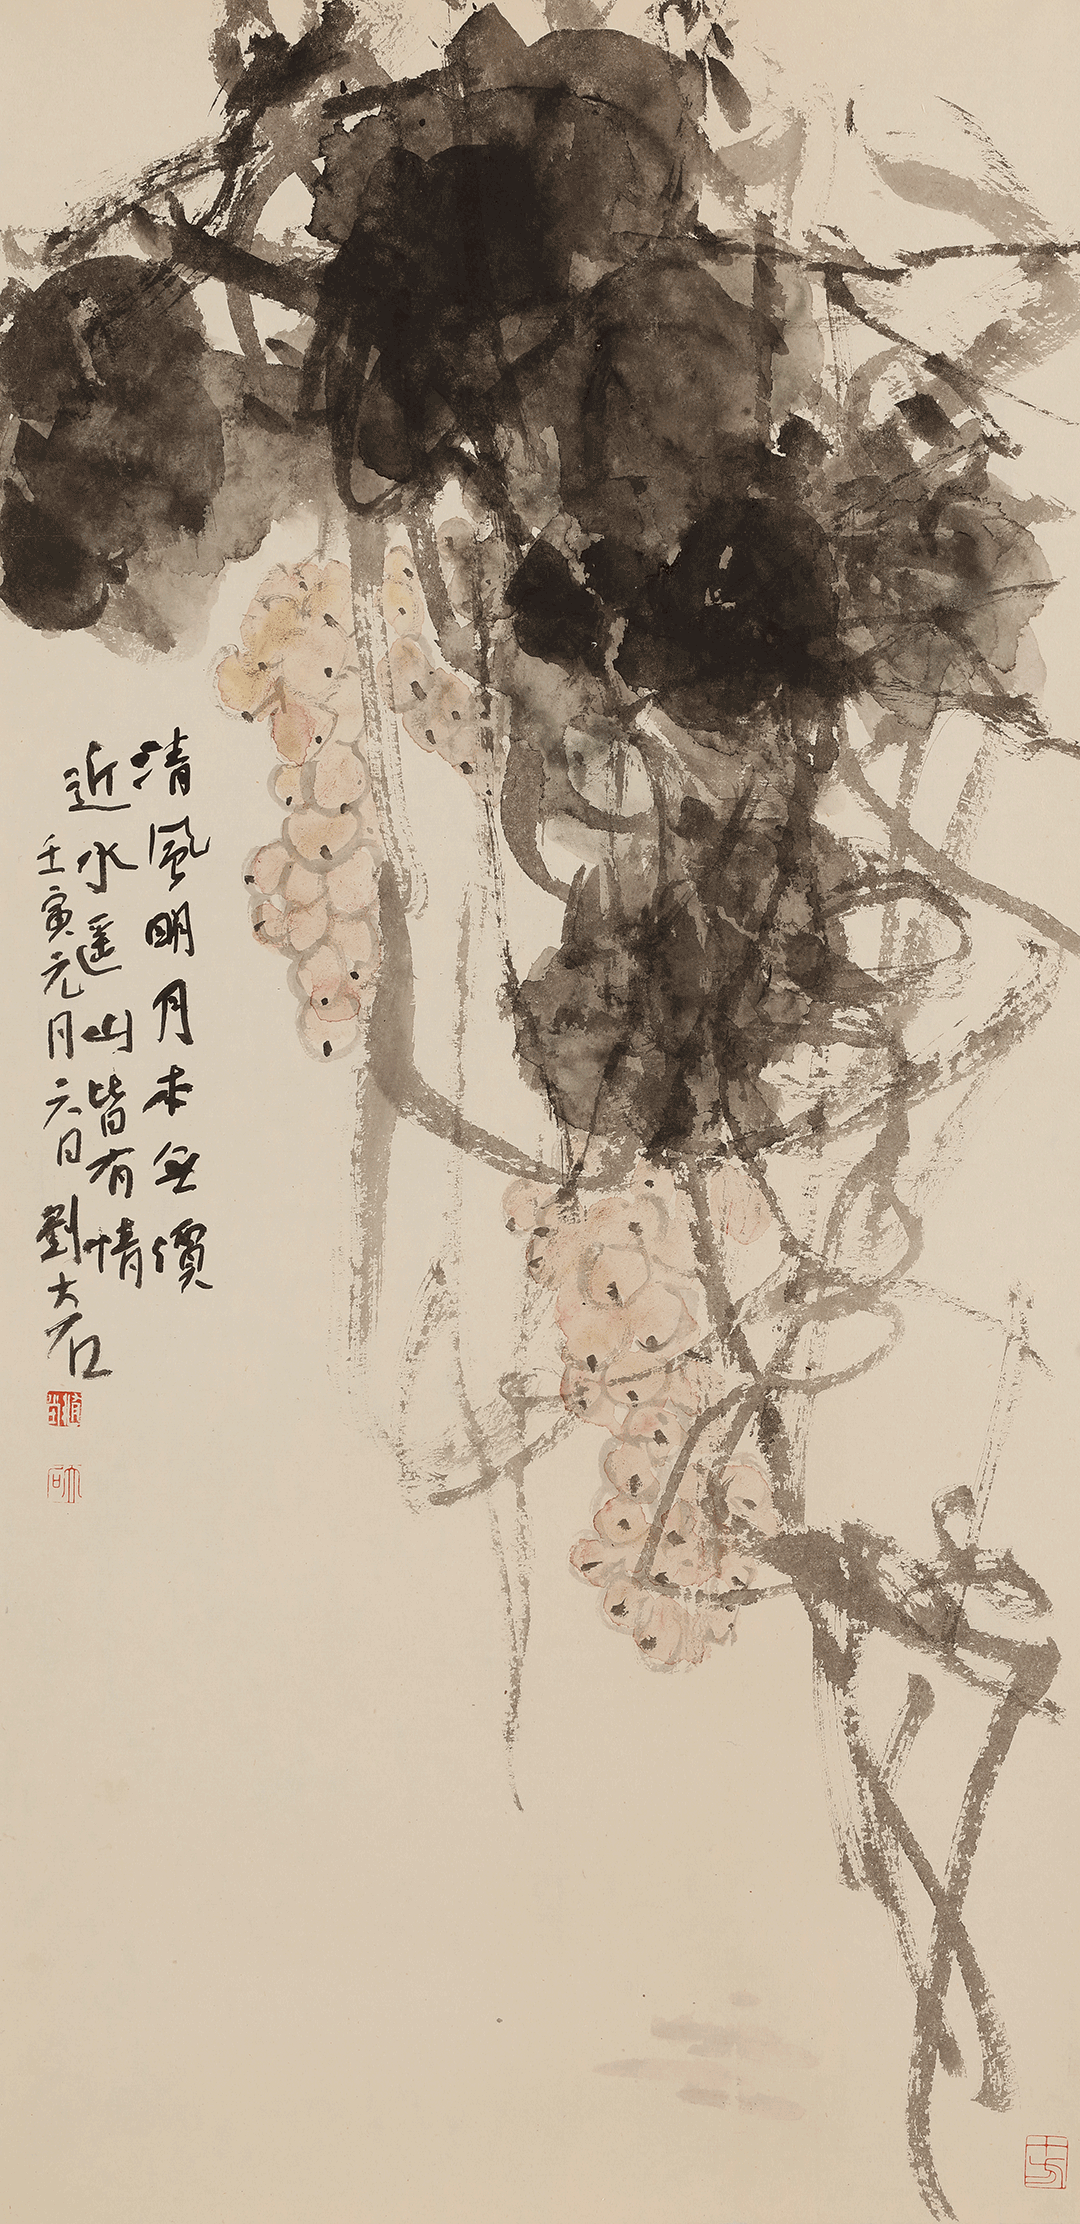 清風明月本無價
近水遥山皆有情
壬寅元月六日劉大石
大石